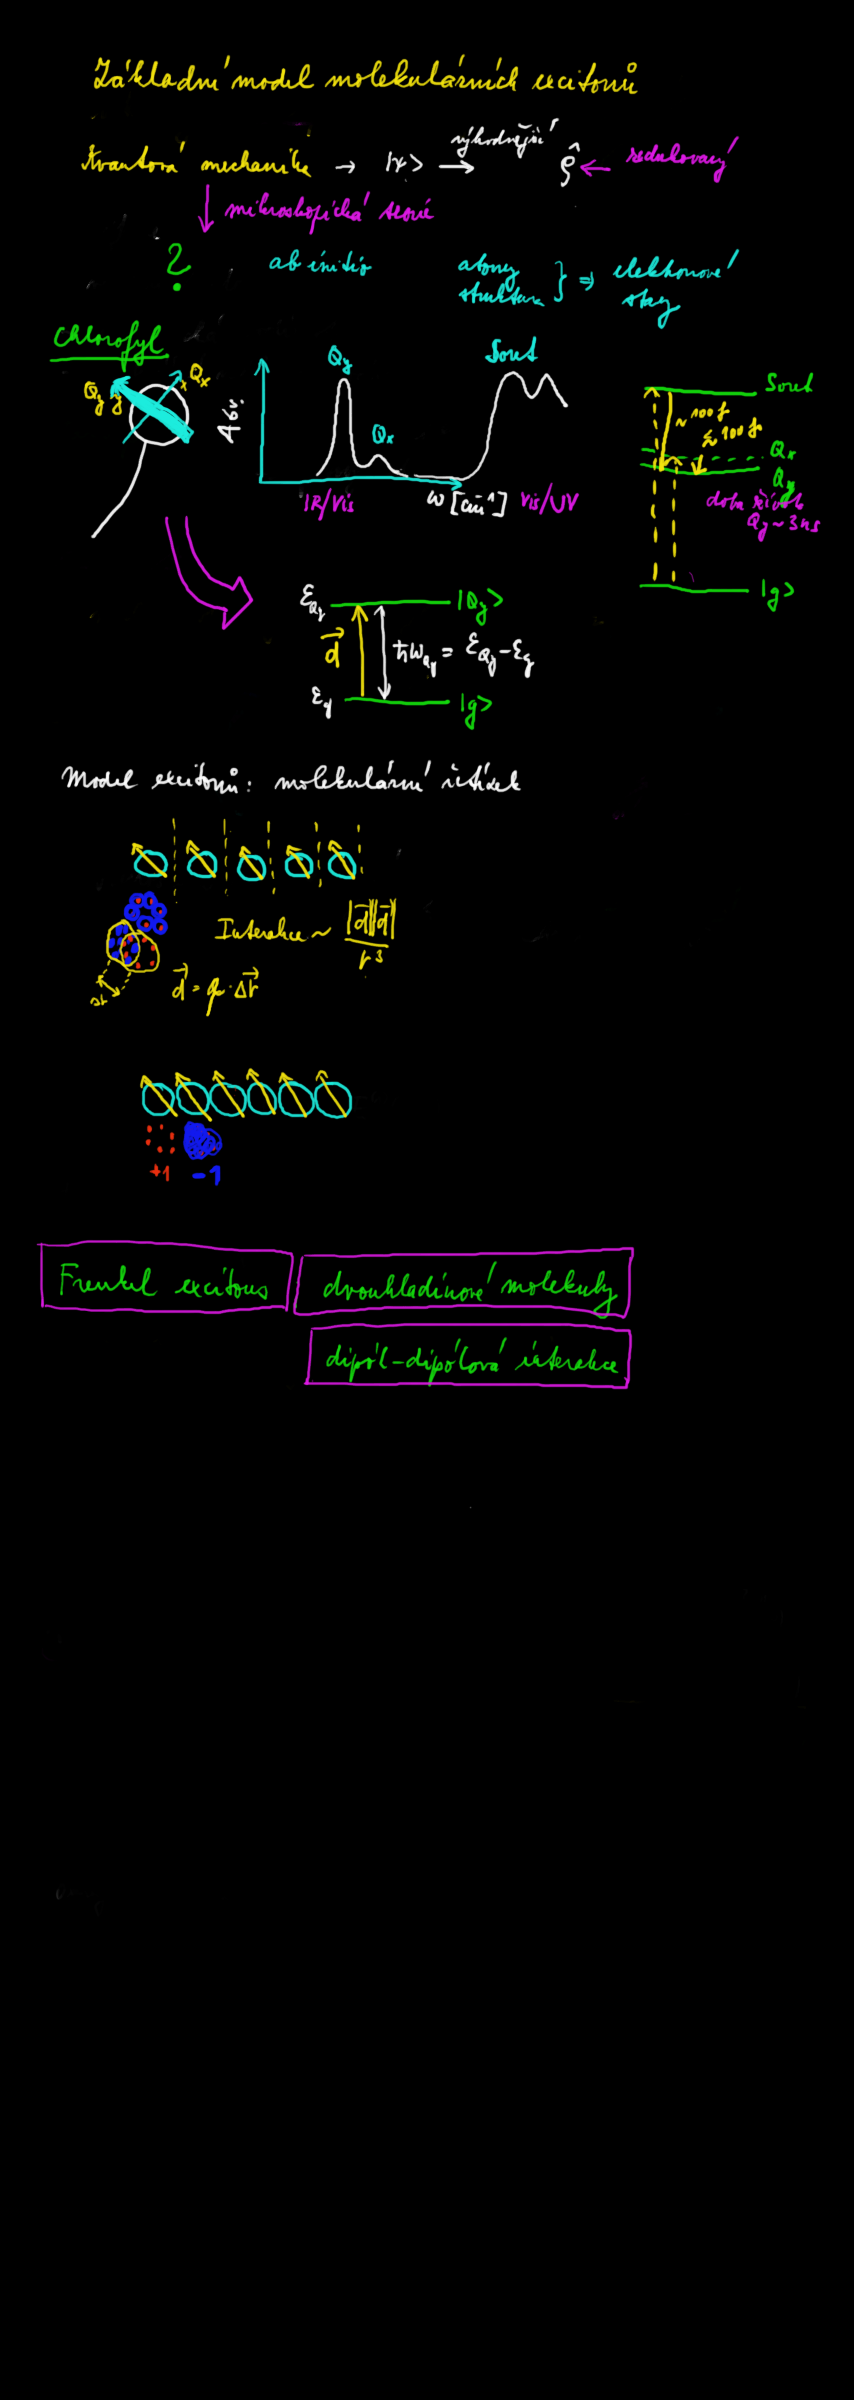 Základní model molekulárních excitonů
Kvantová mechanika → |ψ> → výhodnější ρ̂ ← redukovaný
mikroskopická teorie
?
ab initio
atomy
struktura } ⇒ elektronové
stavy
Chlorofyl
Qy
Qx
Abs.
Qy
Qx
Soret
IR/Vis
ω [cm⁻¹]
Vis/UV
Soret
~ 100 fs
≲ 100 fs
Qx
Qy
doba života
Qy ~ 3 ns
|g>
ε_Qy
|Qy>
d⃗
ħω_Qy = ε_Qy - ε_g
ε_g
|g>
Model excitonů: molekulární řetízek
Interakce ~ |d⃗||d⃗| / r³
Δr
d⃗ = q · Δr⃗
+1
-1
Frenkel excitons
dvouhladinové molekuly
dipól-dipólová interakce